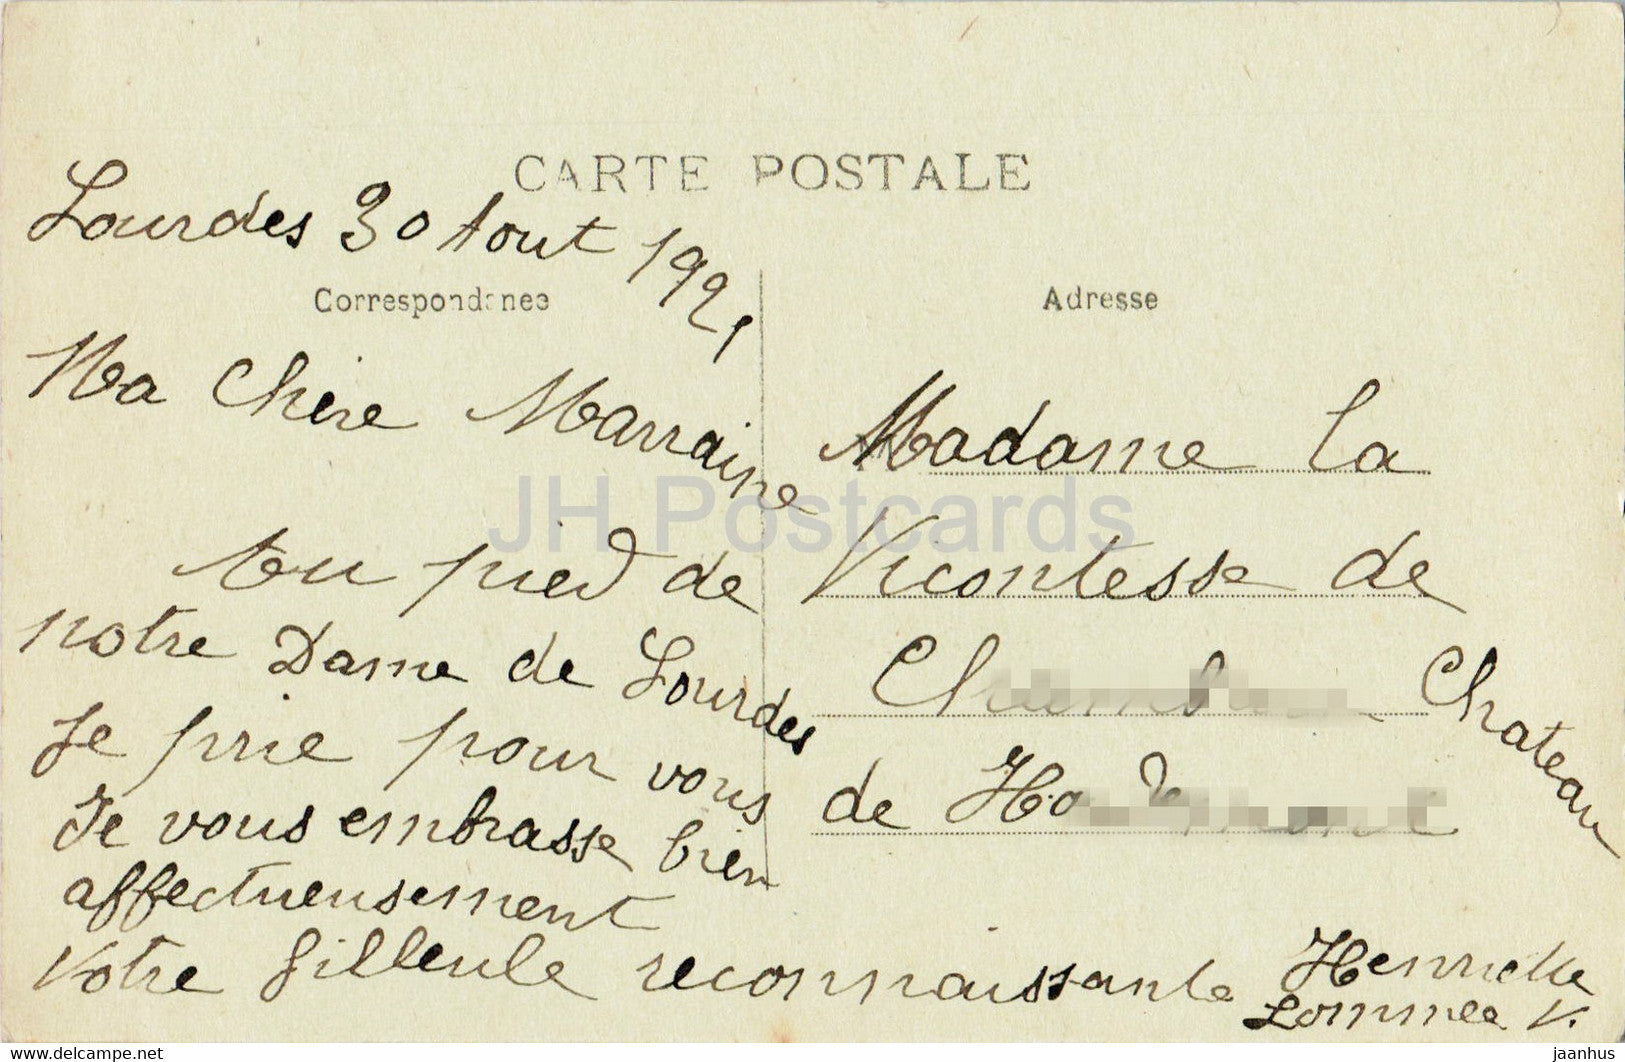 CARTE POSTALE
Lourdes 30 Aout 1921
Correspondance
Ma Chère Marraine
Au pied de
notre Dame de Lourdes
Je prie pour vous
Je vous embrasse bien
affectueusement
Votre filleule reconnaissante Henriette
Lommée V.
Adresse
Madame la
Vicontesse de
Château
de
JH Postcards
hippostcard.com
jaanhus